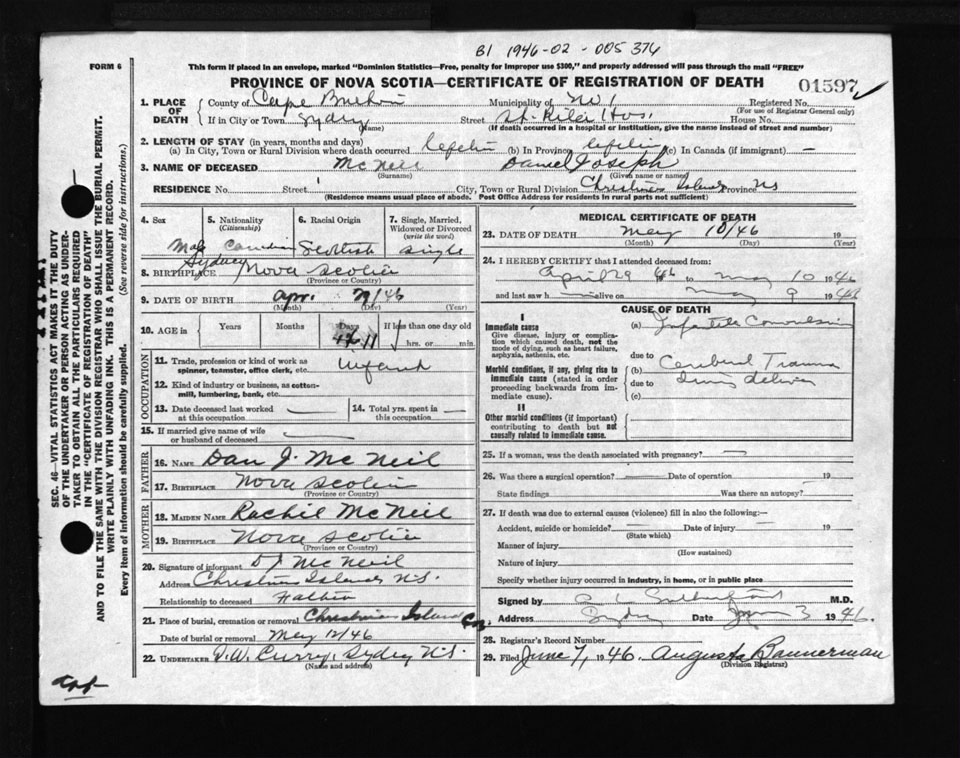 B1 1946-02-005376
FORM 6
This form if placed in an envelope, marked "Dominion Statistics—Free, penalty for improper use $300," and properly addressed will pass through the mail "FREE"
PROVINCE OF NOVA SCOTIA—CERTIFICATE OF REGISTRATION OF DEATH
01597
1. PLACE OF DEATH
County of Cape Breton Municipality of No 1 Registered No.
(For use of Registrar General only)
If in City or Town Sydney Street St. Rita Hos. House No.
(Name) (If death occurred in a hospital or institution, give the name instead of street and number)
2. LENGTH OF STAY (in years, months and days)
(a) In City, Town or Rural Division where death occurred lifetime (b) In Province lifetime (c) In Canada (if immigrant) —
3. NAME OF DECEASED McNeil Daniel Joseph
(Surname) (Given name or names)
RESIDENCE No. Street City, Town or Rural Division Christmas Island Province NS
(Residence means usual place of abode. Post Office Address for residents in rural parts not sufficient)
4. Sex 5. Nationality (Citizenship) 6. Racial Origin 7. Single, Married, Widowed or Divorced (write the word)
Male Canadian Scottish Single
Sydney
8. BIRTHPLACE Nova Scotia
(Province or Country)
9. DATE OF BIRTH Apr. 29/46
(Month) (Day) (Year)
10. AGE in Years Months Days If less than one day old
11 hrs. or min.
OCCUPATION
11. Trade, profession or kind of work as spinner, teamster, office clerk, etc. Infant
12. Kind of industry or business, as cotton-mill, lumbering, bank, etc.
13. Date deceased last worked at this occupation — 14. Total yrs. spent in this occupation —
15. If married give name of wife or husband of deceased —
FATHER
16. NAME Dan J. McNeil
17. BIRTHPLACE Nova Scotia
(Province or Country)
MOTHER
18. MAIDEN NAME Rachil McNeil
19. BIRTHPLACE Nova Scotia
(Province or Country)
20. Signature of informant D J McNeil
Address Christmas Island N.S.
Relationship to deceased Father
21. Place of burial, cremation or removal Christmas Island
Date of burial or removal May 12/46
22. UNDERTAKER D.W. Curry, Sydney N.S.
(Name and address)
MEDICAL CERTIFICATE OF DEATH
23. DATE OF DEATH May 10/46 19
(Month) (Day) (Year)
24. I HEREBY CERTIFY that I attended deceased from:
April 29 46 to May 10 1946
and last saw h alive on May 9 1946
CAUSE OF DEATH
I
Immediate cause
Give disease, injury or complication which caused death, not the mode of dying, such as heart failure, asphyxia, asthenia, etc.
(a) Infantile Convulsion
due to
Morbid conditions, if any, giving rise to immediate cause (stated in order proceeding backwards from immediate cause).
(b) Cerebral Trauma
due to during delivery
(c)
II
Other morbid conditions (if important) contributing to death but not causally related to immediate cause.
25. If a woman, was the death associated with pregnancy? —
26. Was there a surgical operation? — Date of operation 19
State findings Was there an autopsy?
27. If death was due to external causes (violence) fill in also the following:—
Accident, suicide or homicide? — Date of injury — 19
(State which)
Manner of injury
(How sustained)
Nature of injury
Specify whether injury occurred in industry, in home, or in public place
Signed by M.D.
Address Sydney Date June 3 1946.
28. Registrar's Record Number
29. Filed June 7, 1946. Augusta Bannerman
(Division Registrar)
SEC. 46—VITAL STATISTICS ACT MAKES IT THE DUTY
OF THE UNDERTAKER OR PERSON ACTING AS UNDER-
TAKER TO OBTAIN ALL THE PARTICULARS REQUIRED
IN THE "CERTIFICATE OF REGISTRATION OF DEATH"
AND TO FILE THE SAME WITH THE DIVISION REGISTRAR WHO SHALL ISSUE THE BURIAL PERMIT.
WRITE PLAINLY WITH UNFADING INK. THIS IS A PERMANENT RECORD.
Every item of information should be carefully supplied. (See reverse side for instructions.)